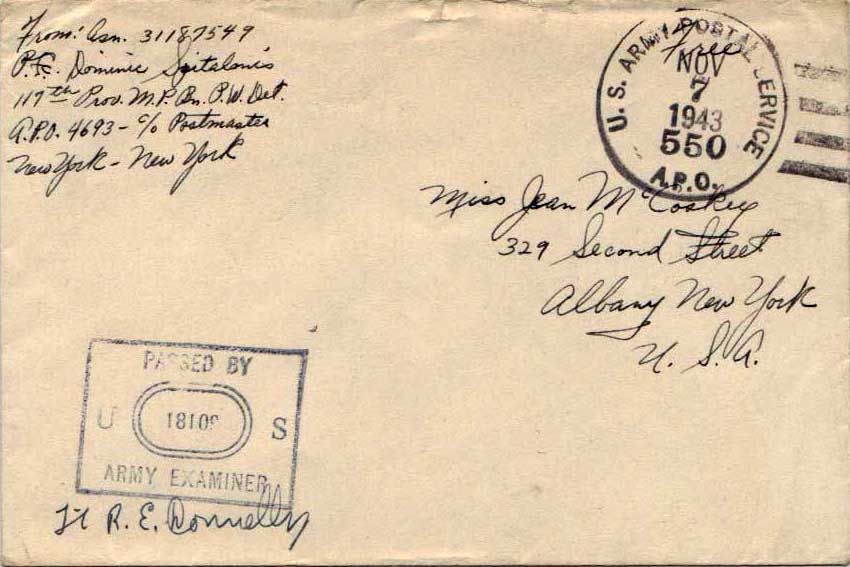 From: Asn. 31187549
Pfc. Dominic Spitalonis
117th Prov. M.P. Bn. P.W. Det.
A.P.O. 4693 - c/o Postmaster
New York - New York
Free
U. S. ARMY POSTAL SERVICE
NOV
7
1943
550
A.P.O.
Miss Jean McCoskey
329 Second Street
Albany New York
U. S. A.
PASSED BY
U 18109 S
ARMY EXAMINER
Lt R. E. Donnelly